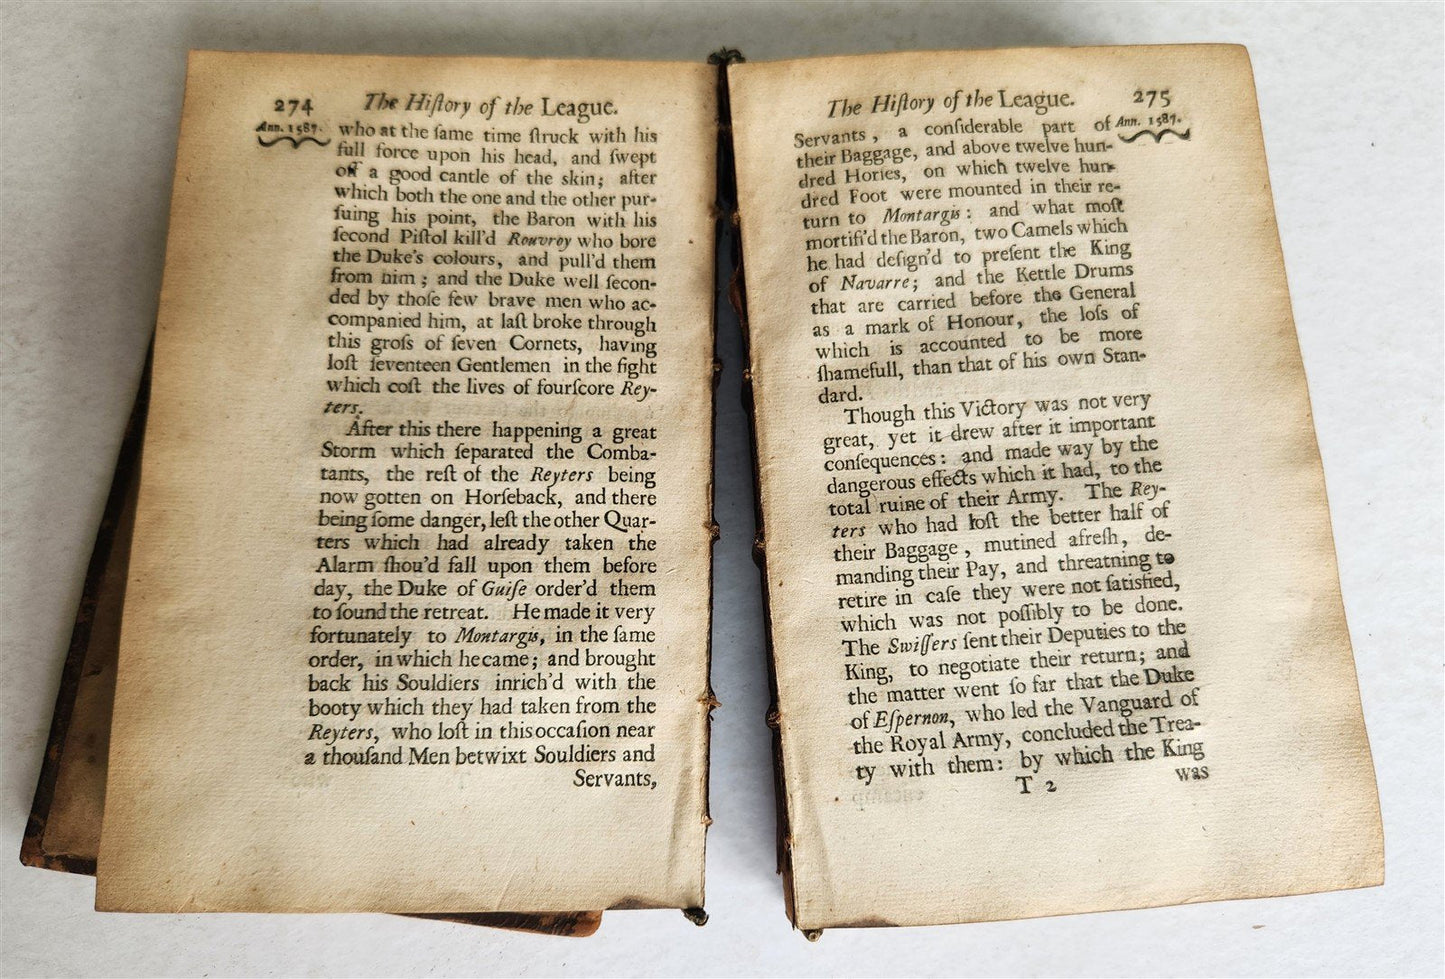 274 The Hiſtory of the League.
Ann. 1587. who at the ſame time ſtruck with his
full force upon his head, and ſwept
off a good cantle of the skin; after
which both the one and the other pur-
ſuing his point, the Baron with his
ſecond Piſtol kill'd Rouvroy who bore
the Duke's colours, and pull'd them
from him; and the Duke well ſecon-
ded by thoſe few brave men who ac-
companied him, at laſt broke through
this groſs of ſeven Cornets, having
loſt ſeventeen Gentlemen in the fight
which coſt the lives of fourſcore Rey-
ters.
After this there happening a great
Storm which ſeparated the Comba-
tants, the reſt of the Reyters being
now gotten on Horſeback, and there
being ſome danger, leſt the other Quar-
ters which had already taken the
Alarm ſhou'd fall upon them before
day, the Duke of Guiſe order'd them
to ſound the retreat. He made it very
fortunately to Montargis, in the ſame
order, in which he came; and brought
back his Souldiers inrich'd with the
booty which they had taken from the
Reyters, who loſt in this occaſion near
a thouſand Men betwixt Souldiers and
Servants,
The Hiſtory of the League. 275
Servants, a conſiderable part of Ann. 1587.
their Baggage, and above twelve hun-
dred Horſes, on which twelve hun-
dred Foot were mounted in their re-
turn to Montargis: and what moſt
mortifi'd the Baron, two Camels which
he had deſign'd to preſent the King
of Navarre; and the Kettle Drums
that are carried before the General
as a mark of Honour, the loſs of
which is accounted to be more
ſhamefull, than that of his own Stan-
dard.
Though this Victory was not very
great, yet it drew after it important
conſequences: and made way by the
dangerous effects which it had, to the
total ruine of their Army. The Rey-
ters who had loſt the better half of
their Baggage, mutined afreſh, de-
manding their Pay, and threatning to
retire in caſe they were not ſatisfied,
which was not poſſibly to be done.
The Swiſſers ſent their Deputies to the
King, to negotiate their return; and
the matter went ſo far that the Duke
of Eſpernon, who led the Vanguard of
the Royal Army, concluded the Trea-
ty with them: by which the King
T 2 was